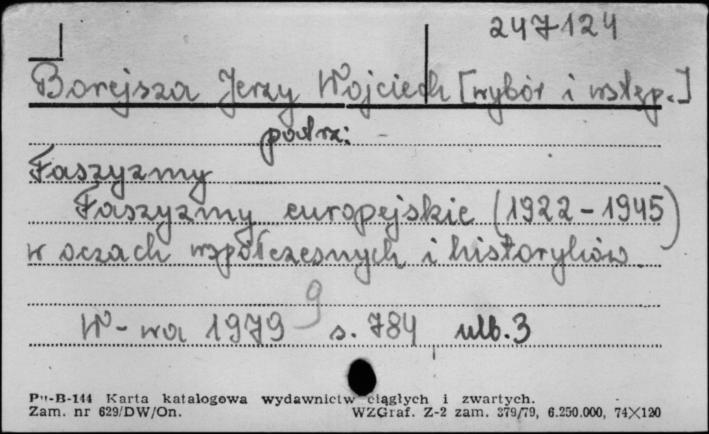 247124
Borejsza Jerzy Wojciech [wybór i wstęp.]
patrz:
Faszyzmy
Faszyzmy europejskie (1922-1945)
w oczach współczesnych i historyków.
W-wa 1979 9 s. 784 ulb. 3
Pu-B-144 Karta katalogowa wydawnictw ciągłych i zwartych.
Zam. nr 629/DW/On. WZGraf. Z-2 zam. 379/79, 6.250.000, 74×120